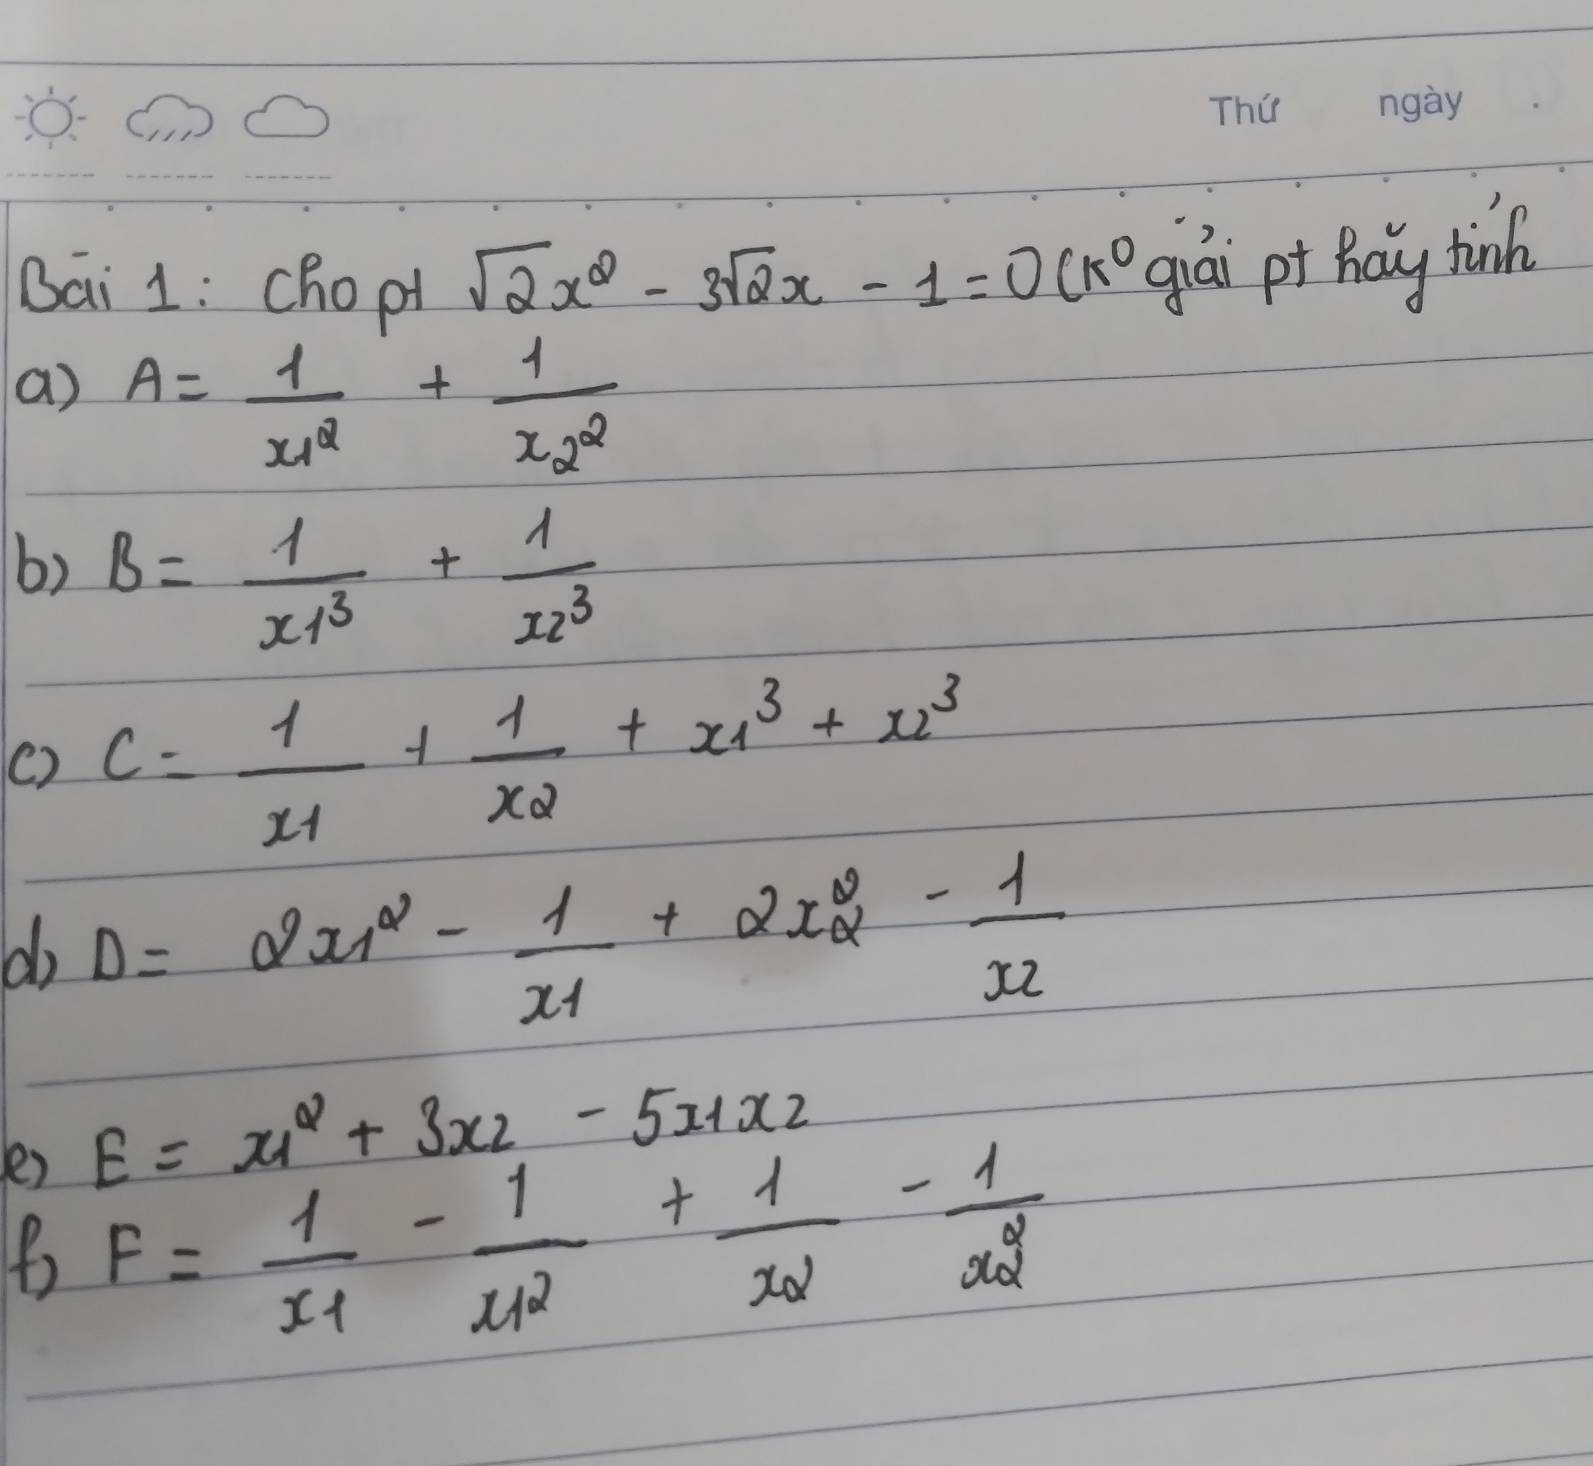 Thứ ngày
Bài 1: Cho pt √2x² - 3√2x - 1 = 0 (K⁰ giải pt hãy tính
a) A = 1/x1² + 1/x2²
b) B = 1/x1³ + 1/x2³
c) C = 1/x1 + 1/x2 + x1³ + x2³
d) D = 2x1² - 1/x1 + 2x2² - 1/x2
e) E = x1² + 3x2 - 5x1x2
f) F = 1/x1 - 1/x1² + 1/x2 - 1/x2²